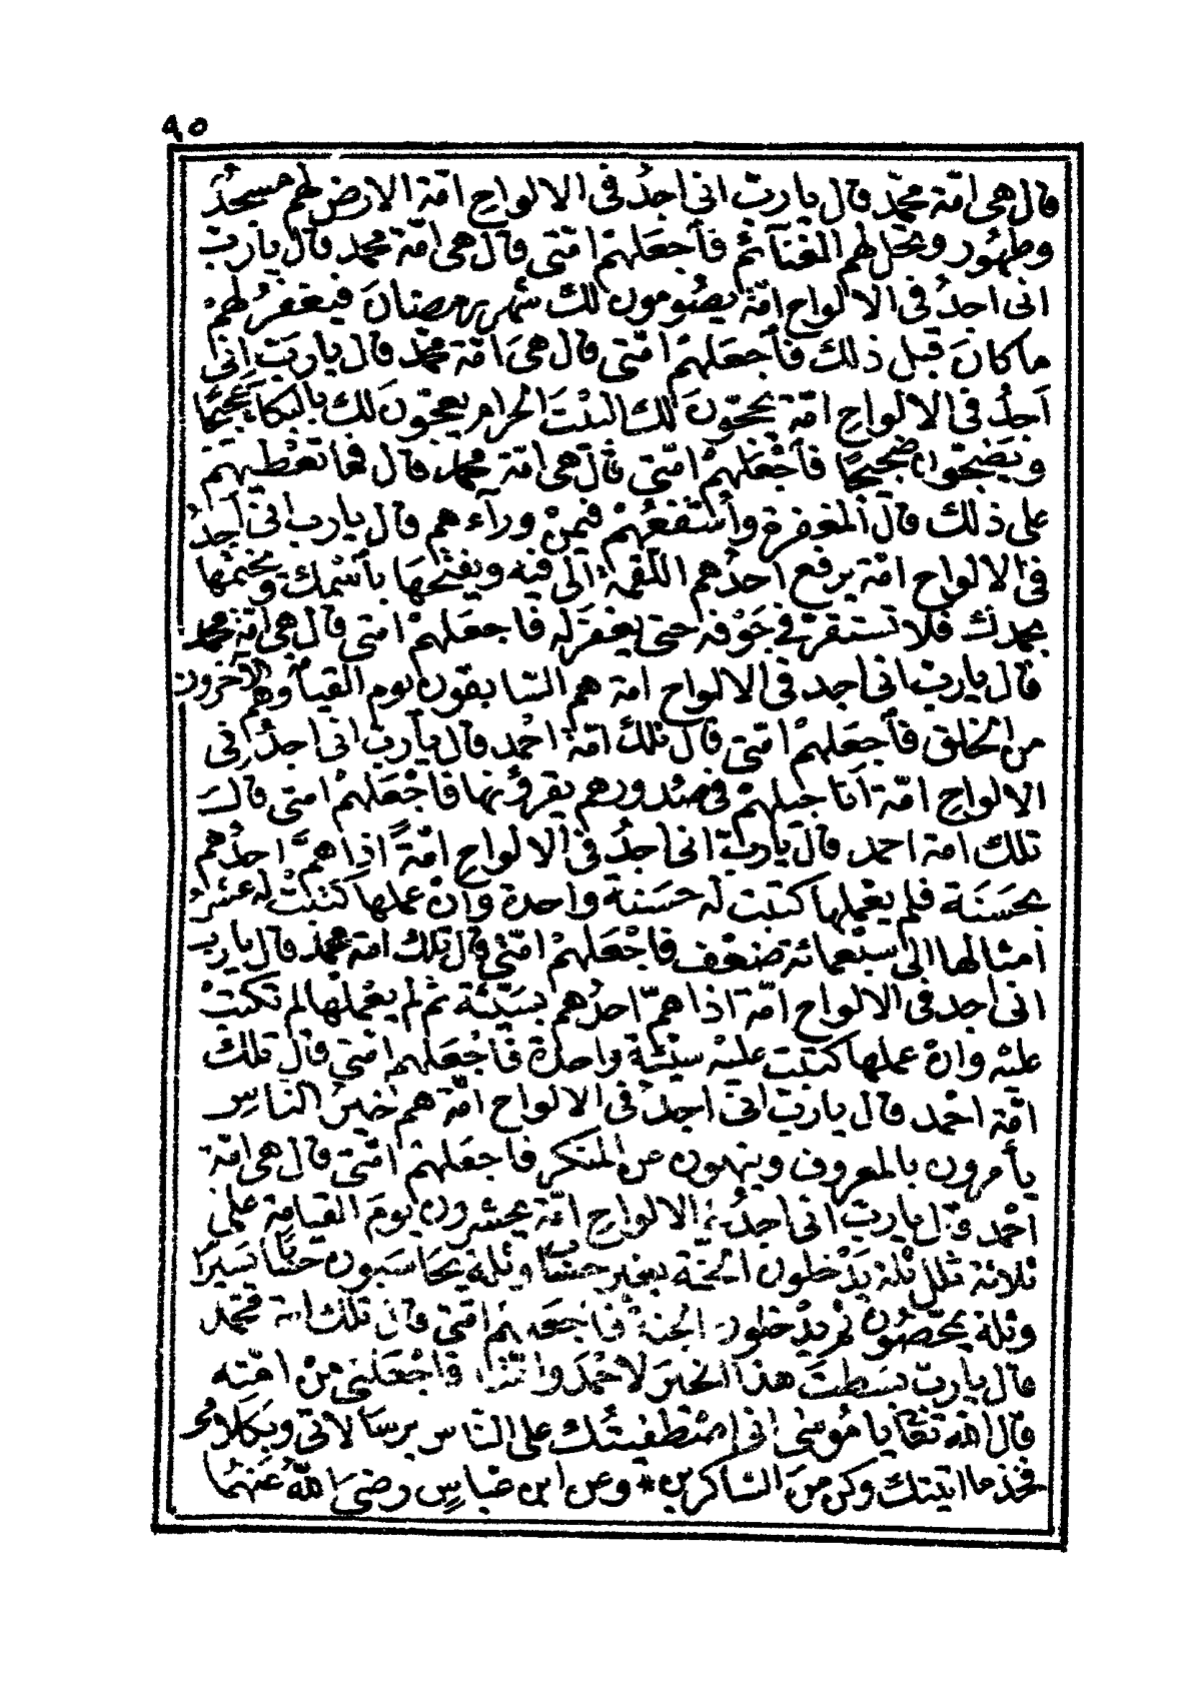 ٩٥
قال هى امّة محمّد قال يا ربّ انى اجدُ فى الالواح امّة الارض لهم مسجدٌ
وطهُور وتحلّ لهم الغنآئمُ فأجعَلهمْ امّتى قال هى امّة محمد قال يآربّ
انى اجدُ فى الالواح امّة يصُومون لك شهر رمضانَ فيغفرُ لهمْ
ما كانَ قبل ذلك فأجعَلهمْ امّتى قال هىَ امّة محمّد قال ياربّ اِنى
اَجدُ فى الالواح امّة يحجّونَ لك البَيْتَ الحرام يعجّونَ لك بالبكا عَجيجًا
ويَضجّون ضَجيجًا فأجْعَلهمْ امّتى قالَ هى امّة محمد قال فما تعْطيهمْ
على ذلك قال ألمغفرة وأشفعُهمْ فيمنْ ورآءهم قال يارب انىّ اجدُ
فى الالواح امّة يرفع احدُهم اللّقمةَ الى فيه ويفتحُها بأسْمك ويختمُها
بحمدك فلا تستقرّ فى جَوْفه حتى يغفرَ له فاجعَلهمْ امتى قال هى امّة محمد
قال ياربّ انى اجد فى الالواح امة هم السّابقون يوم القيامة وهم الآخرون
من الخلق فأجعَلهمْ امّتى قال تلك امّة احْمد قال يآربّ انى اجدُ فى
الالواحِ امّة اَناجيلهمْ فى صُدورهم يقرؤنها فاجْعَلهمْ امتى قالَ
تلك امة احمد قالَ ياربّ انى اجدُ فى الالواح امّةً اذا همّ احدُهم
بحَسَنَة فلم يعْملها كتبت له حَسَنة واحدة وانْ عملها كتبتْ له عشرُ
أمثالها الى سبْعمائة ضعْف فاجْعَلهمْ امّتى قال تلك امة محمد قال يارب
انى اجد فى الالواح امّة اذا همّ احدُهم بسَيّئة ثم لم يعْملها لم تكتبْ
عليْه وانْ عملها كتبتْ عليْه سيّئة واحدة فاجْعَلهم امّتى قال تلك
امّة احْمد قال ياربّ انى اجدُ فى الالواح امّة هم خيرُ النّاسِ
يأمرون بالمعروف وينهون عن المنكر فاجعَلهمْ امّتى قال هى امّة
احْمد قال ياربّ انى اجدُ فى الالواح امّة يحشرون يومَ القيامة على
ثلاثة ثلل ثلة يَدْخلون الجنّة بغير حسَاب وثلة يحَاسَبون حسَابا يَسيرًا
وثلة يمحّصُون ثم يدْخلون الجنة فاجعَلهمْ امّتى قال تلك امّة محمّد
قال ياربّ بسَطتَ هذا الخيرَ لاحْمدَ وامّته فاجْعَلنى منْ امّته
قال الله تعَالى يا مُوسَى انى اصْطفيتُك على النّاس برسَالاتى وبكَلامى
فخذ ما اتيتك وكن منَ الشاكرين * وعن ابن عبّاسٍ رضىَ اللهُ عَنهُما